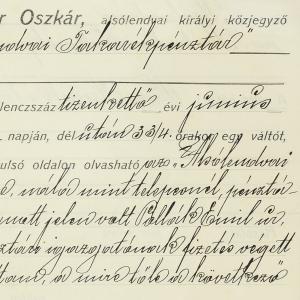 r Oszkár, alsólendvai királyi közjegyző
ndvai Takarékpénztár"
lenczszáz tizenkettő évi június
napján, délután 3 3/4 órakor egy váltót,
ulsó oldalon olvasható az "Alsólendvai
nála mint telepesnél, pénztá-
matt jelen volt Pollák Emil úr,
ztári igazgatónak fizetés végett
ttam, a mire tőle a következő